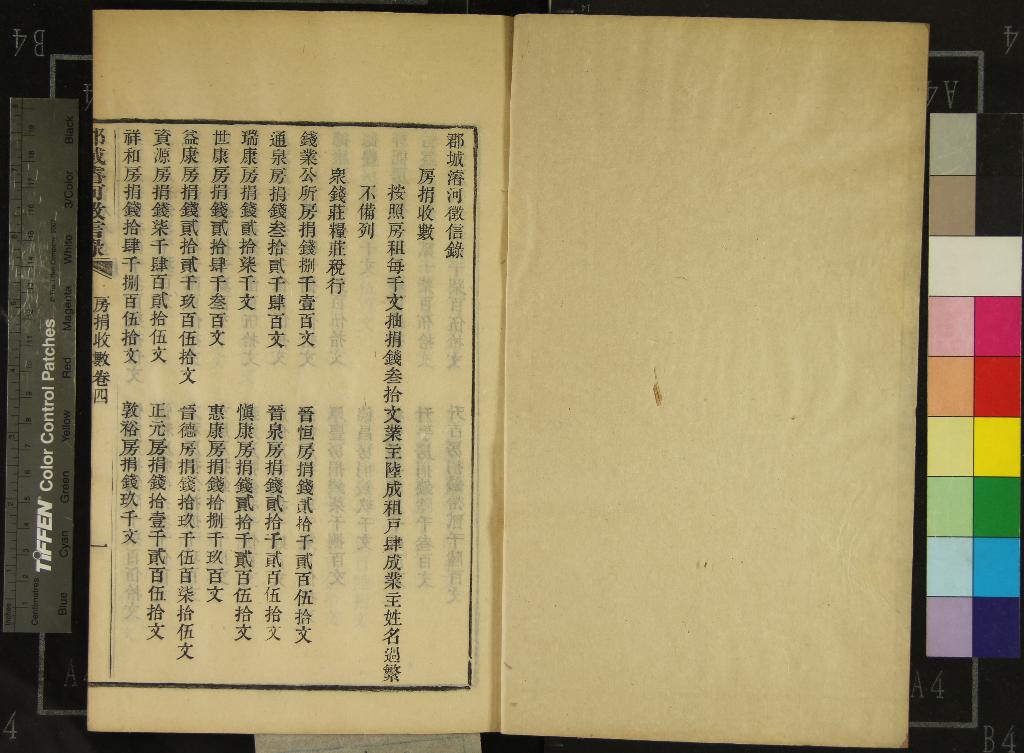 郡城濬河徵信錄
房捐收數
按照房租每千文抽捐錢叁拾文業主陸成租戸肆成業主姓名過繁
不備列
衆錢莊糧莊稅行
錢業公所房捐錢捌千壹百文
晉恒房捐錢貳拾千貳百伍拾文
通泉房捐錢叁拾貳千肆百文
晉泉房捐錢貳拾千貳百伍拾文
瑞康房捐錢貳拾柒千文
愼康房捐錢貳拾千貳百伍拾文
世康房捐錢貳拾肆千叁百文
惠康房捐錢拾捌千玖百文
益康房捐錢貳拾貳千玖百伍拾文
晉德房捐錢拾玖千伍百柒拾伍文
資源房捐錢柒千肆百貳拾伍文
正元房捐錢拾壹千貳百伍拾文
祥和房捐錢拾肆千捌百伍拾文
敦裕房捐錢玖千文
郡城濬河徵信錄
房捐收數卷四
一
TIFFEN Color Control Patches
© The Tiffen Company, 2007
Inches
Centimetres
Blue
Cyan
Green
Yellow
Red
Magenta
White
3/Color
Black
B4
A4
A4
A4
B4
4